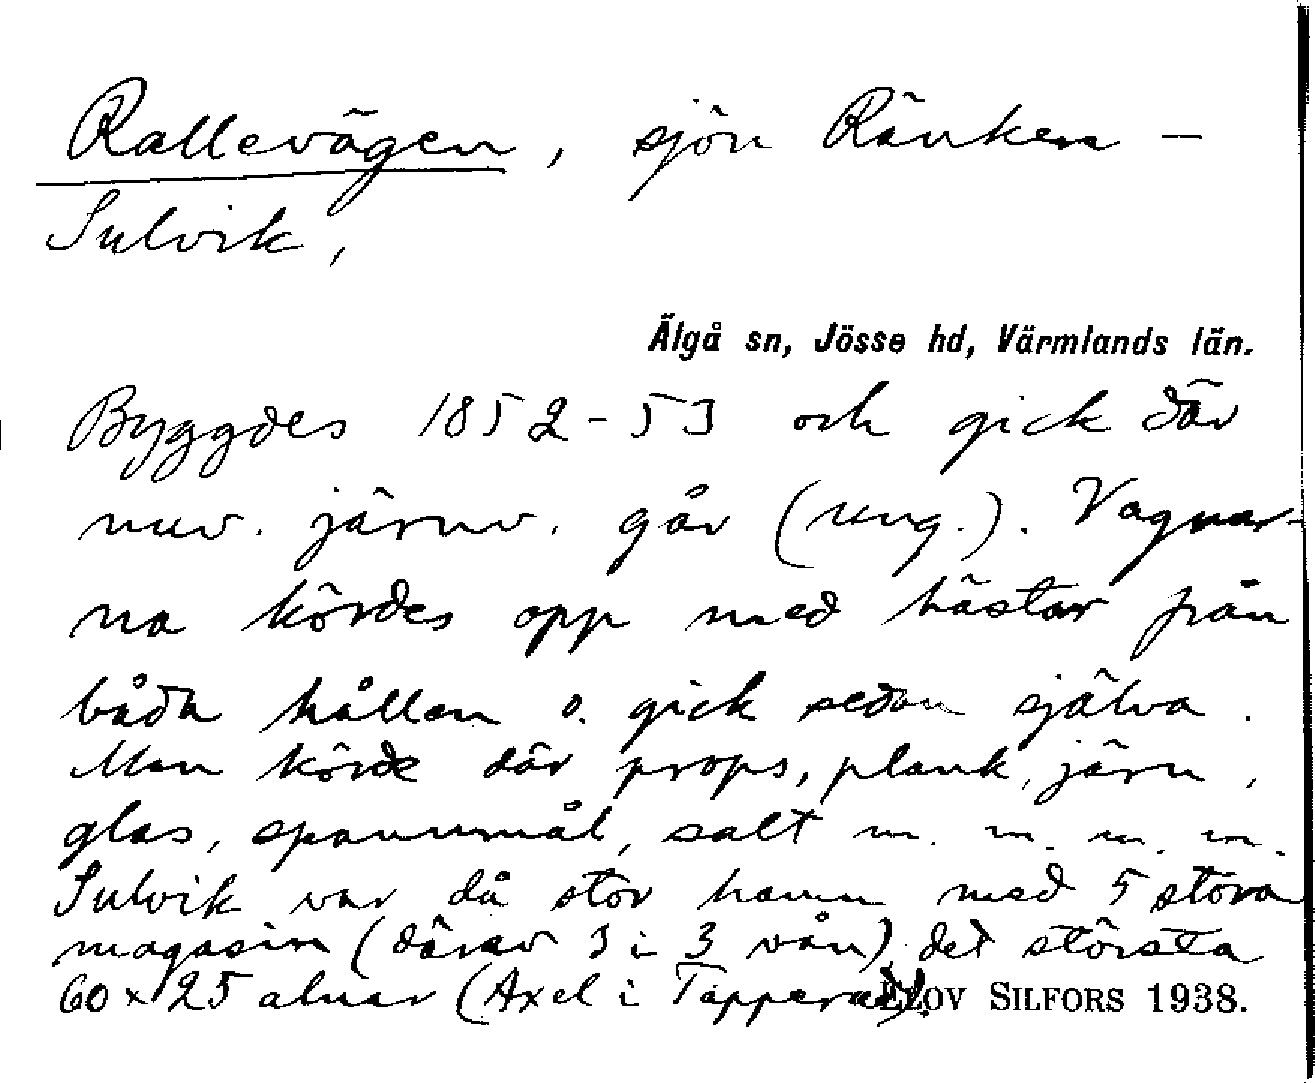 Rallevägen, sjön Ränken –
Sulvik,
Älgå sn, Jösse hd, Värmlands län.
Byggdes 1852-53 och gick där
nuv. järnv. går (ung.). Vagnar-
na kördes opp med hästar från
båda hållen o. gick sedan själva.
Man körde där props, plank, järn,
glas, spannmål, salt m. m. m. m.
Sulvik var då stor hamn med 5 stora
magasin (därav 3 i 3 vån), det största
60 x 25 alnar (Axel i Tapperud).
ELOV SILFORS 1938.